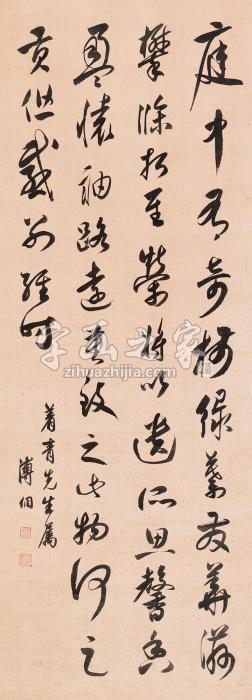 庭中有奇樹綠葉發華滋
攀條折其榮將以遺所思馨香
盈懷袖路遠莫致之此物何足
貢但感別經時
著青先生屬
溥侗
字画之家
zihuazhijia.com